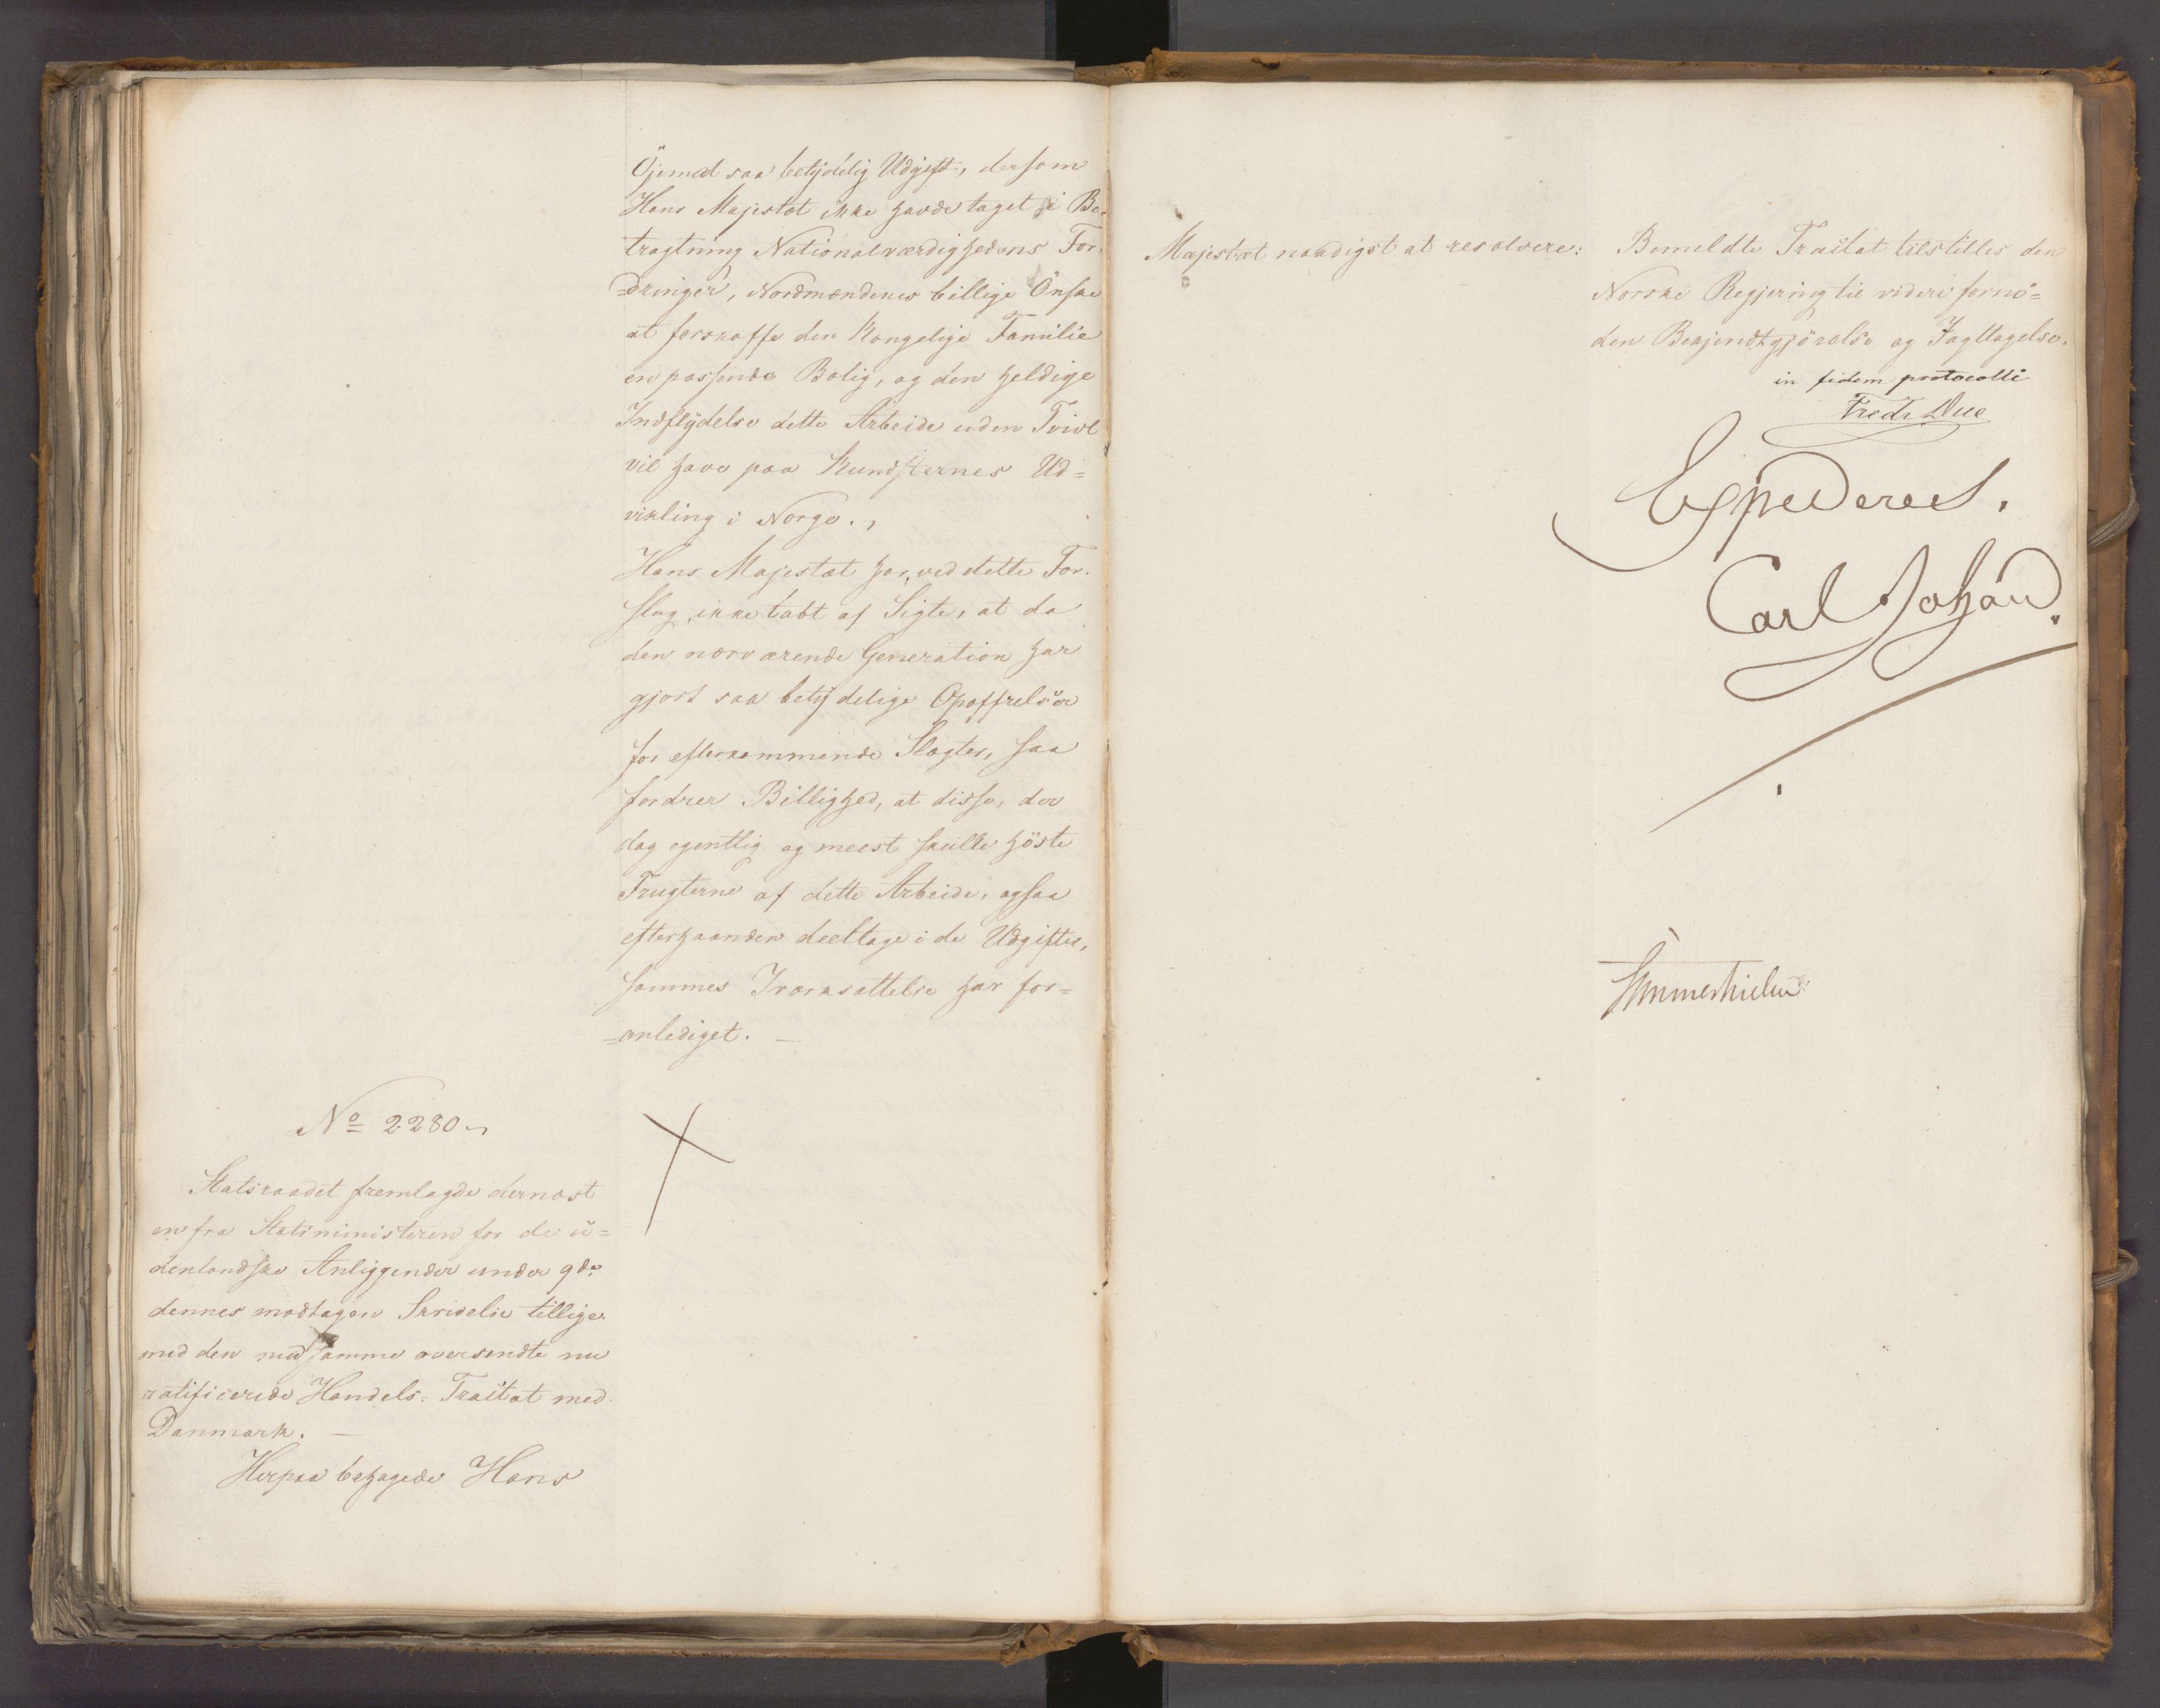 Öjemed saa betydelig Udgift, dersom
Hans Majestæt ikke havde taget i Be-
tragtning Nationalværdighedens For-
=dringer, Nordmændenes billige Önske
at forskaffe den Kongelige Familie
en passende Bolig, og den heldige
Indflydelse dette Arbeide uden Tvivl
vil have paa Kundsternes Ud=
vikling i Norge.,
Hans Majestæt har, ved dette For-
slag, ikke tabt af Sigte, at da
den nærværende Generation har
gjort saa betydelige Opoffrelser
for efterkommende Slægter, saa
fordrer Billighed, at disse, der
dog egentlig og meest skulle höste
Frugterne af dette Arbeide, ogsaa
efterhaanden deeltage i de Udgifter,
sammes Iværksættelse har for=
=anlediget. —
No 2280
Statsraadet fremlagde dernæst
en fra Statsministeren for de u=
denlandske Anliggender under 9de
dennes modtagen Skrivelse tillige-
med den med samme oversendte nu
ratificerede Handels-Traitat med
Danmark. —
Herpaa behagede Hans
Majestæt naadigst at resolvere:
Bemeldte Traitat tilstilles den
Norske Regjering til videre fornö=
den Bekjendtgjörelse og Iagttagelse.
in fidem protocolli
Fredr Due
Expederes.
Carl Johan.